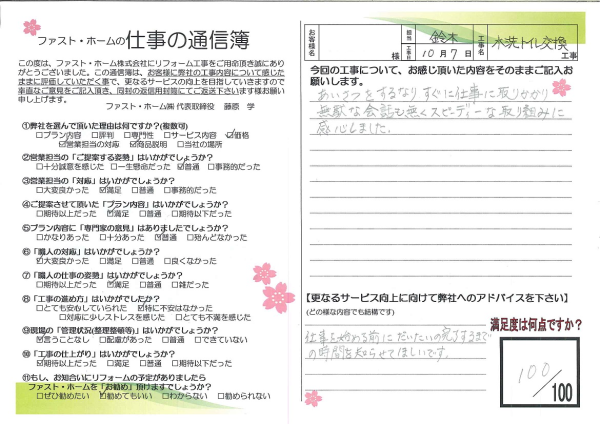 ファスト・ホームの仕事の通信簿
この度は、ファスト・ホーム株式会社にリフォーム工事をご用命頂き誠にあり
がとうございました。この通信簿は、お客様に弊社の工事内容について感じた
ままに評価していただく事で、更なるサービスの向上を目指していきますので
率直なご意見をご記入頂き、同封の返信用封筒にてご返送下さいます様お願い
申し上げます。
ファスト・ホーム㈱ 代表取締役 藤原 学
①弊社を選んで頂いた理由は何ですか?(複数可)
□プラン内容 □評判 □専門性 □サービス内容 ☑価格
☑営業担当の対応 ☑商品説明 □当社の場所
②営業担当の「ご提案する姿勢」はいかがでしょうか?
□十分誠意を感じた □一生懸命だった ☑普通 □事務的だった
③営業担当の「対応」はいかがでしょうか?
□大変良かった ☑満足 □普通 □事務的だった
④ご提案させて頂いた「プラン内容」はいかがでしょうか?
□期待以上だった ☑満足 □普通 □期待以下だった
⑤プラン内容に「専門家の意見」はありましたでしょうか?
□かなりあった □十分あった ☑普通 □殆んどなかった
⑥「職人の対応」はいかがでしょうか?
☑大変良かった □満足 □普通 □良くなかった
⑦「職人の仕事の姿勢」はいかがでしょうか?
□期待以上だった ☑満足 □普通 □雑だった
⑧「工事の進め方」はいかがでしたか?
□とても安心していられた ☑特に不安はなかった
□対応に少しストレスを感じた □とても不満を感じた
⑨現場の「管理状況(整理整頓等)」はいかがでしょうか?
☑言うことなし □配慮があった □普通 □できていない
⑩「工事の仕上がり」はいかがでしょうか?
□期待以上だった ☑満足 □普通 □期待以下だった
⑪もし、お知合いにリフォームの予定がありましたら
ファスト・ホームを「お勧め」頂けますでしょうか?
□ぜひ勧めたい ☑勧めてもいい □わからない □勧められない
お客様名 様 担当 鈴木 工事日 10月7日 工事名 水洗トイレ交換 工事
今回の工事について、お感じ頂いた内容をそのままご記入お
願いします。
あいさつをするなりすぐに仕事に取りかかり
無駄な会話も無くスピーディーな取り組みに
感心しました。
【更なるサービス向上に向けて弊社へのアドバイスを下さい】
(どの様な内容でも結構です)
仕事を始める前にだいたいの完了するまで
の時間を知らせてほしいです。
満足度は何点ですか?
100/100